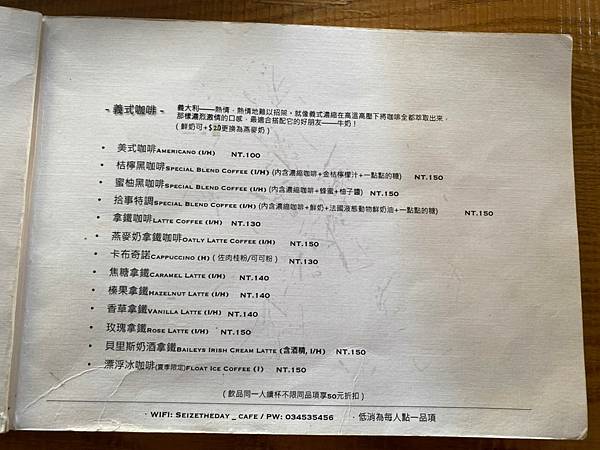 - 義式咖啡 -
義大利——熱情，熱情地難以招架。就像義式濃縮在高溫高壓下將咖啡全都萃取出來，
那樣濃烈激情的口感，最適合搭配它的好朋友——牛奶！
（鮮奶可+$20更換為燕麥奶）
• 美式咖啡AMERICANO (I/H) NT.100
• 桔檸黑咖啡SPECIAL BLEND COFFEE (I/H) (內含濃縮咖啡+金桔檸檬汁+一點點的糖) NT.150
• 蜜柚黑咖啡SPECIAL BLEND COFFEE (I/H) (內含濃縮咖啡+蜂蜜+柚子醬) NT.150
• 拾事特調SPECIAL BLEND COFFEE (I/H) (內含濃縮咖啡+鮮奶+法國液態動物鮮奶油+一點點的糖) NT.150
• 拿鐵咖啡LATTE COFFEE (I/H) NT.130
• 燕麥奶拿鐵咖啡OATLY LATTE COFFEE (I/H) NT.150
• 卡布奇諾CAPPUCCINO (H)（佐肉桂粉/可可粉） NT.130
• 焦糖拿鐵CARAMEL LATTE (I/H) NT.140
• 榛果拿鐵HAZELNUT LATTE (I/H) NT.140
• 香草拿鐵VANILLA LATTE (I/H) NT.140
• 玫瑰拿鐵ROSE LATTE (I/H) NT.150
• 貝里斯奶酒拿鐵BAILEYS IRISH CREAM LATTE (含酒精, I/H) NT.150
• 漂浮冰咖啡(夏季限定)FLOAT ICE COFFEE (I) NT.150
（飲品同一人續杯不限同品項享50元折扣）
· WIFI: SEIZETHEDAY_CAFE / PW: 034535456 · 低消為每人點一品項